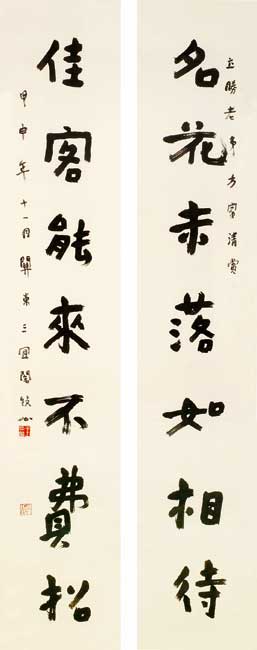 立勝老弟方家清賞
名花未落如相待
佳客能來不費招
甲申年十一月關東三宜閣